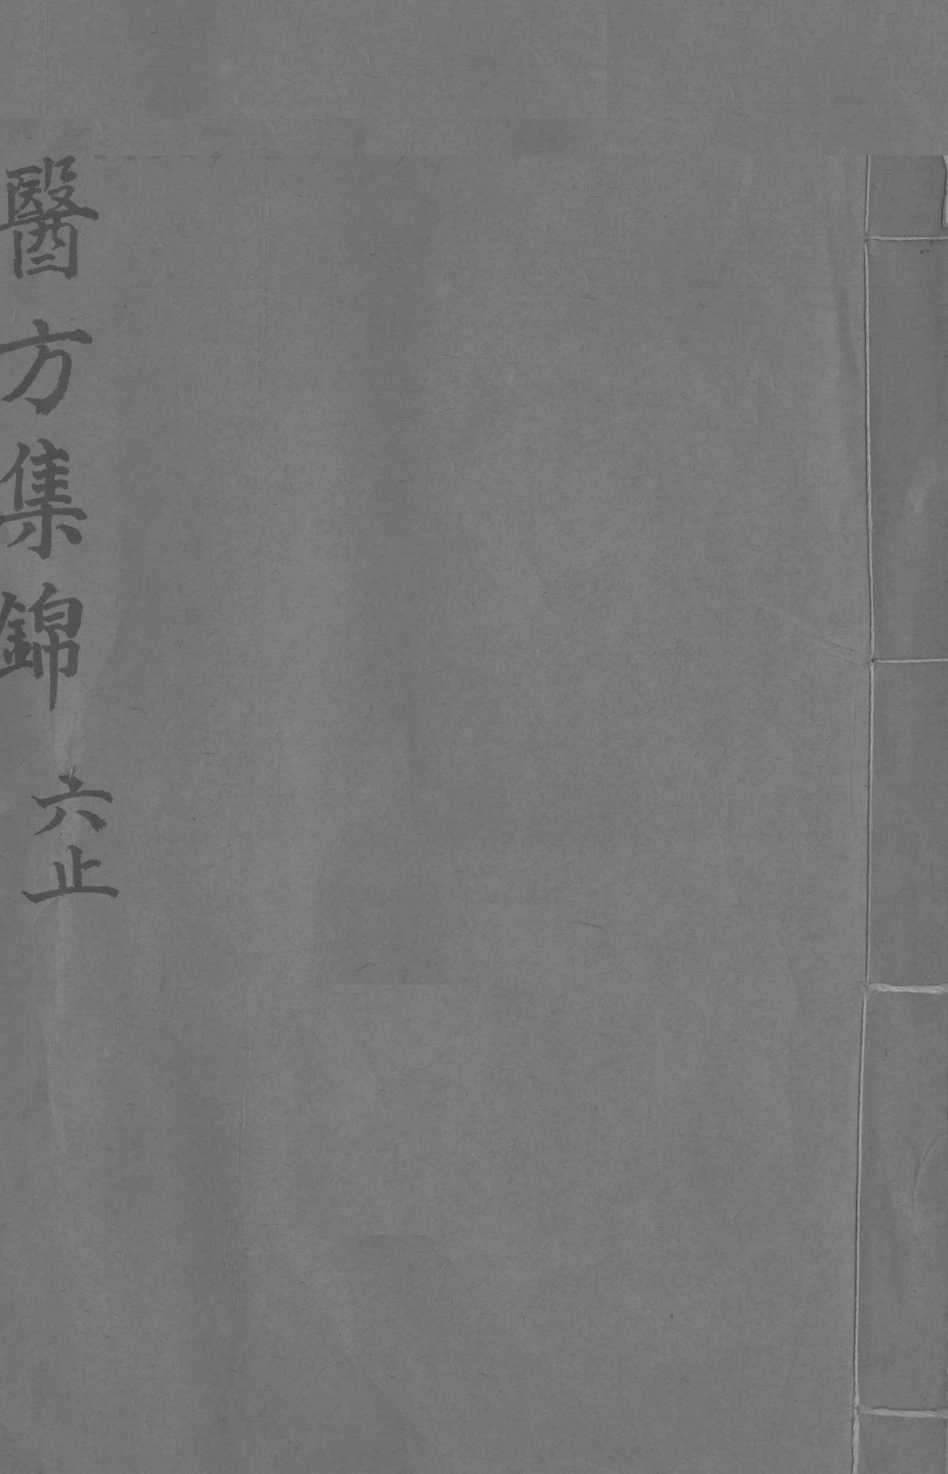 醫方集錦
六止